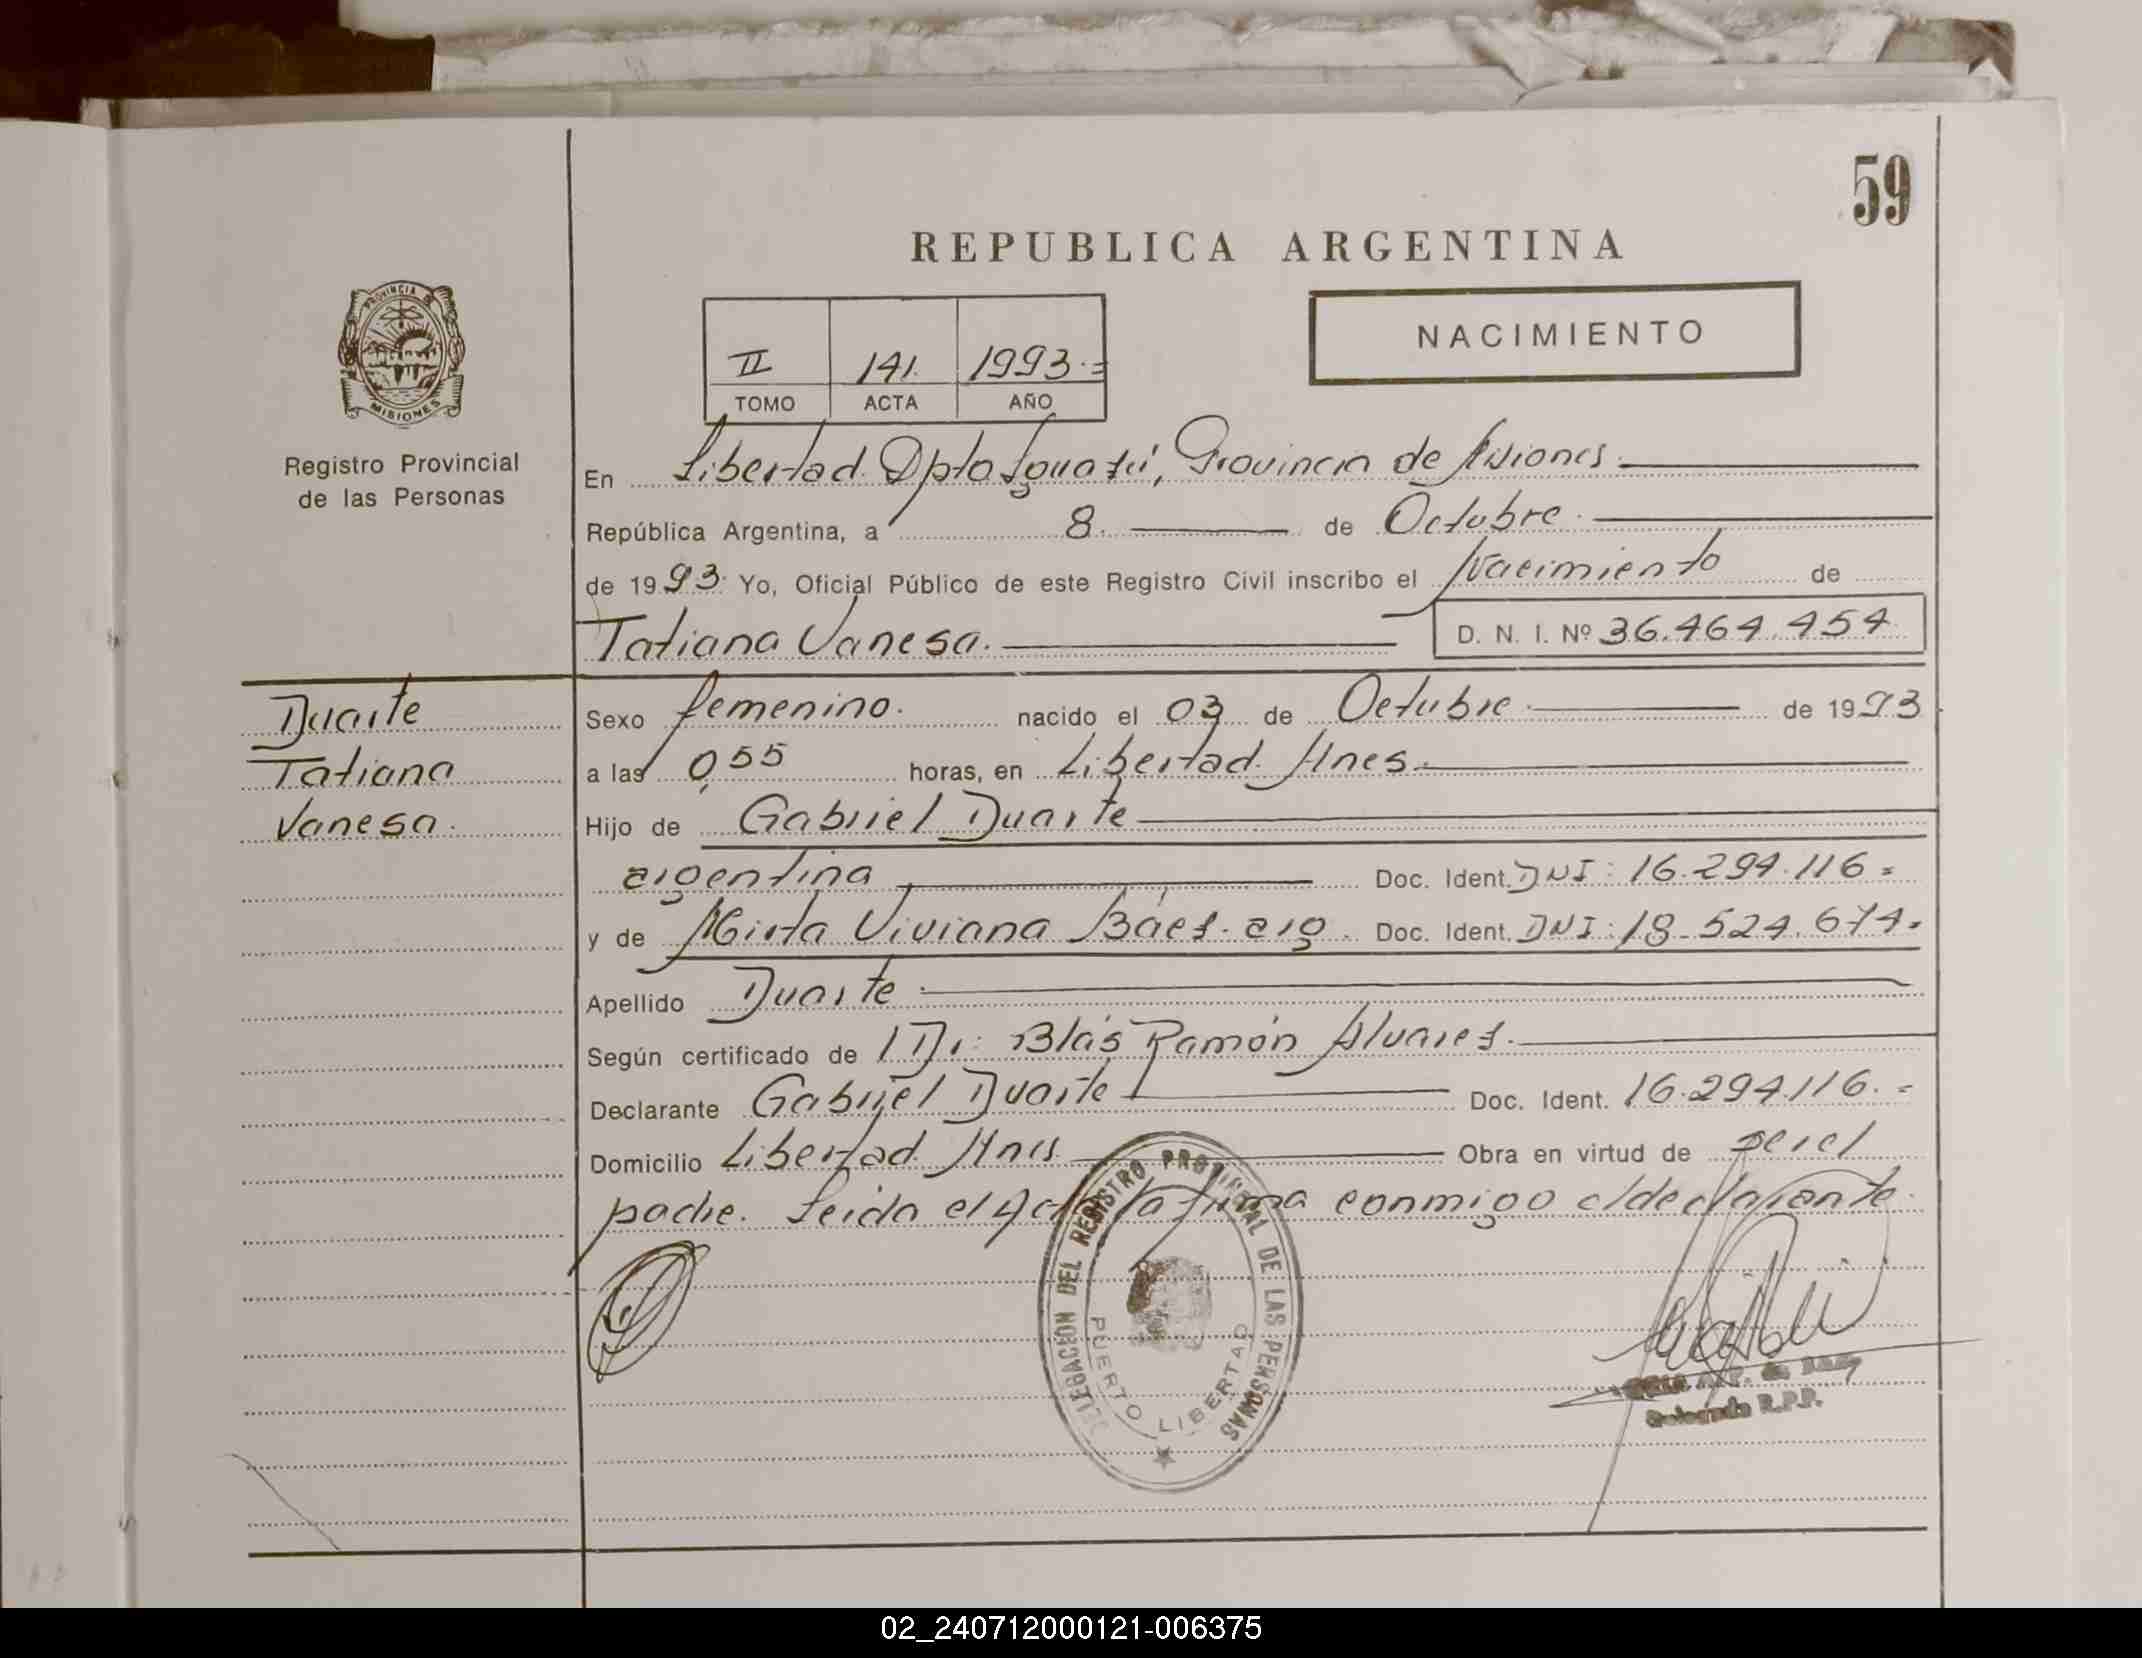 59
REPUBLICA ARGENTINA
PROVINCIA DE
MISIONES
Registro Provincial
de las Personas
II 141. 1993.=
TOMO ACTA AÑO
NACIMIENTO
En Libertad Dpto Iguazú, Provincia de Misiones.
República Argentina, a 8. de Octubre.
de 1993. Yo, Oficial Público de este Registro Civil inscribo el Nacimiento de
Tatiana Vanesa. D. N. I. Nº 36.464.454
Duarte
Tatiana
Vanesa.
Sexo femenino. nacido el 03 de Octubre de 1993
a las 0,55 horas, en Libertad Mnes.
Hijo de Gabriel Duarte
argentina Doc. Ident. DNI: 16.294.116=
y de Mirta Viviana Báez. arg. Doc. Ident. DNI: 18.524.674.
Apellido Duarte.
Según certificado de Dr: Blás Ramón Alvarez.
Declarante Gabriel Duarte Doc. Ident. 16.294.116.=
Domicilio Libertad Mnes Obra en virtud de ser el
padre. Leida el Acta la firma conmigo el declarante.
DELEGACION DEL REGISTRO PROVINCIAL DE LAS PERSONAS
PUERTO LIBERTAD
Delegada R.P.P.
02_240712000121-006375